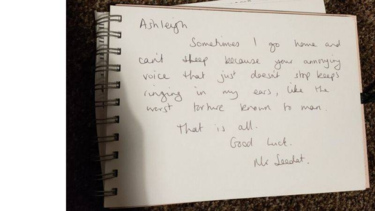 Ashleigh
Sometimes I go home and
can't sleep because your annoying
voice that just doesn't stop keeps
ringing in my ears, like the
worst torture known to man.
That is all.
Good Luck.
Mr Seedat.